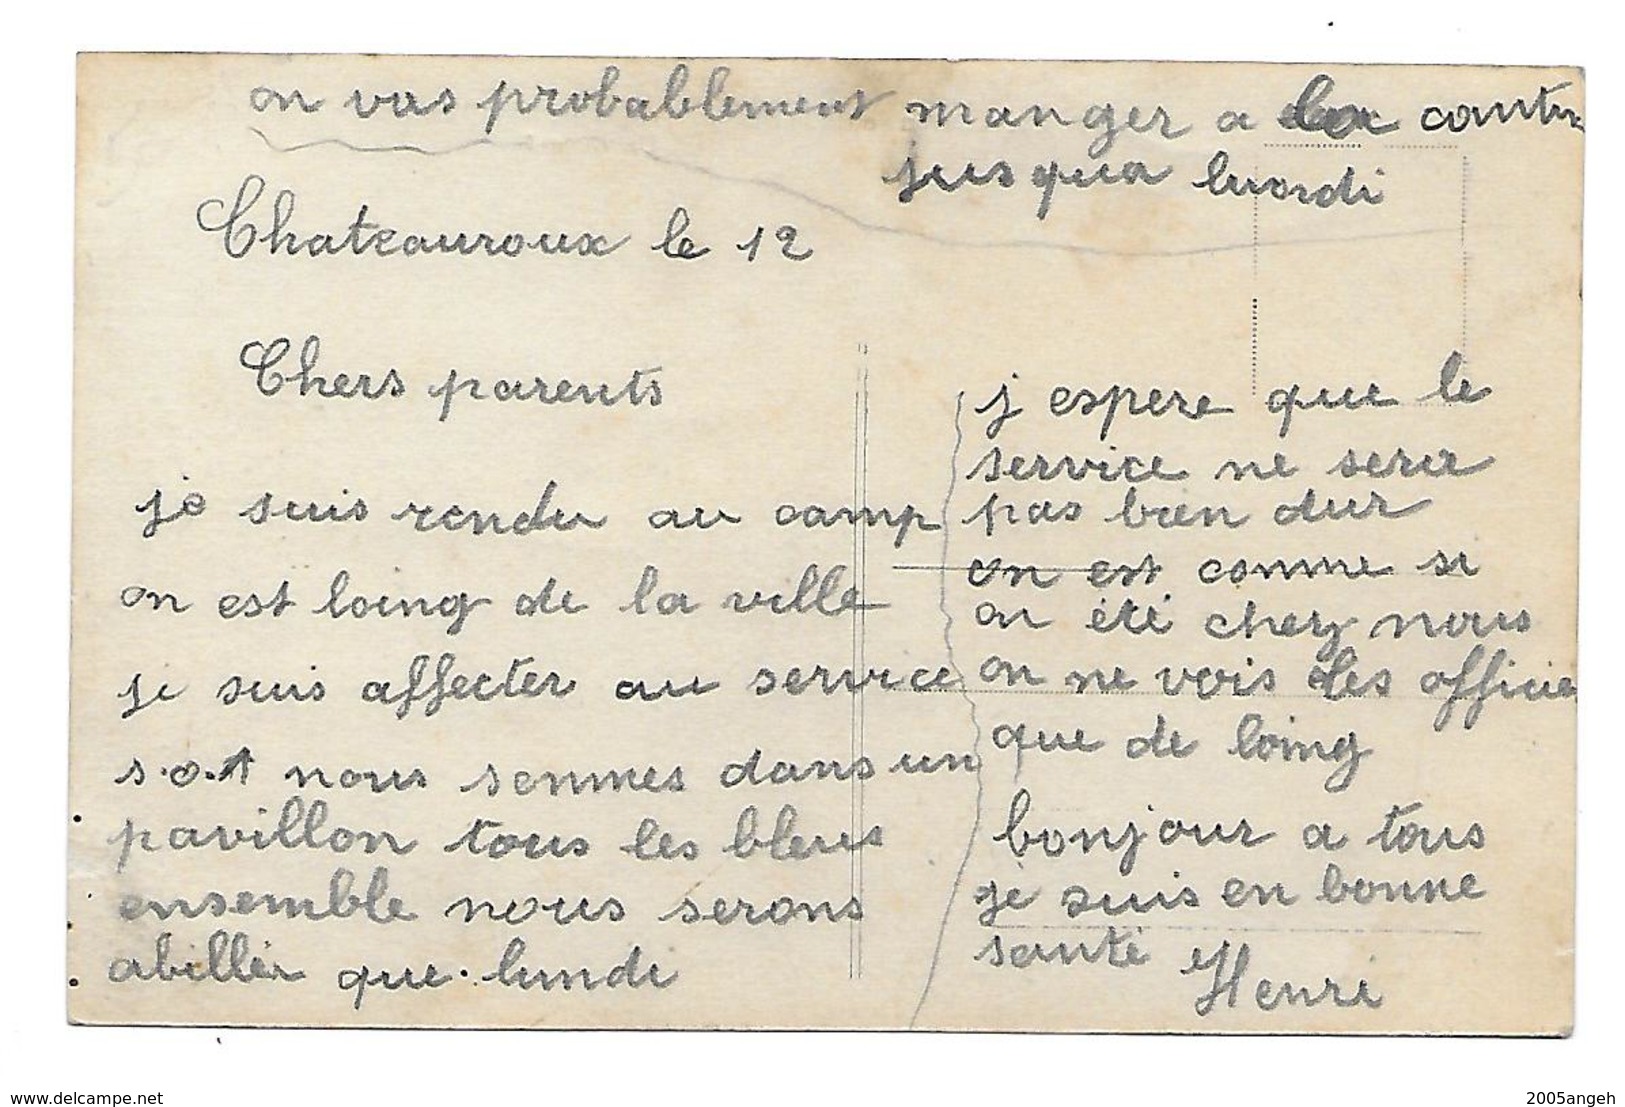 on vas probablement manger a la cantin
jusqua
Chateauroux le 12
Chers parents
je suis rendu au camp
on est loing de la ville
je suis affecter au service
s.o.t nous sommes dans un
pavillon tous les bleus
ensemble nous serons
abiller que lundi
j espere que le
service ne sera
pas bien dur
on est comme si
on été chez nous
on ne vois les officie
que de loing
bonjour a tous
je suis en bonne
santé Henri
delcampe.net
2005angeh